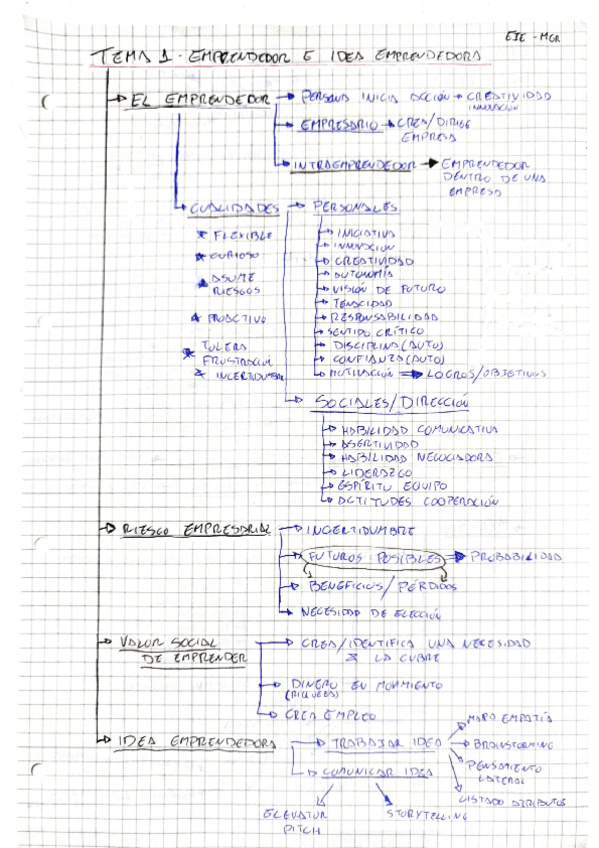 EIE - MGR
TEMA 1 - EMPRENDEDOR E IDEA EMPRENDEDORA
→ EL EMPRENDEDOR → PERSONA INICIA ACCIÓN → CREATIVIDAD
INNOVACIÓN
→ EMPRESARIO → CREA/DIRIGE
EMPRESA
→ INTRAEMPRENDEDOR → EMPRENDEDOR
DENTRO DE UNA
EMPRESA
→ CUALIDADES → PERSONALES
★ FLEXIBLE
★ CURIOSO
★ ASUME
RIESGOS
★ PROACTIVO
★ TOLERA
FRUSTRACIÓN
& INCERTIDUMBRE
→ INICIATIVA
→ INNOVACIÓN
→ CREATIVIDAD
→ AUTONOMÍA
→ VISIÓN DE FUTURO
→ TENACIDAD
→ RESPONSABILIDAD
→ SENTIDO CRÍTICO
→ DISCIPLINA (AUTO)
→ CONFIANZA (AUTO)
→ MOTIVACIÓN → LOGROS/OBJETIVOS
→ SOCIALES/DIRECCIÓN
→ HABILIDAD COMUNICATIVA
→ ASERTIVIDAD
→ HABILIDAD NEGOCIADORA
→ LIDERAZGO
→ ESPÍRITU EQUIPO
→ ACTITUDES COOPERACIÓN
→ RIESGO EMPRESARIAL → INCERTIDUMBRE
→ FUTUROS POSIBLES → PROBABILIDAD
→ BENEFICIOS/PÉRDIDAS
→ NECESIDAD DE ELECCIÓN
→ VALOR SOCIAL
DE EMPRENDER
→ CREA/IDENTIFICA UNA NECESIDAD
& LA CUBRE
→ DINERO EN MOVIMIENTO
(RIQUEZA)
→ CREA EMPLEO
→ IDEA EMPRENDEDORA → TRABAJAR IDEA
→ MAPA EMPATÍA
→ BRAINSTORMING
→ PENSAMIENTO
LATERAL
→ LISTADO ATRIBUTOS
→ COMUNICAR IDEA
ELEVATOR
PITCH
STORYTELLING